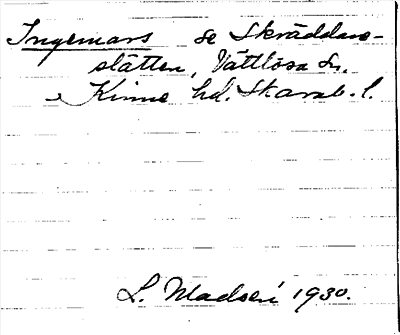 Ingemars se Skräddare-
slätten, Vättlösa sn.
Kinne hd. Skarab. l.
L. Madsén 1930.